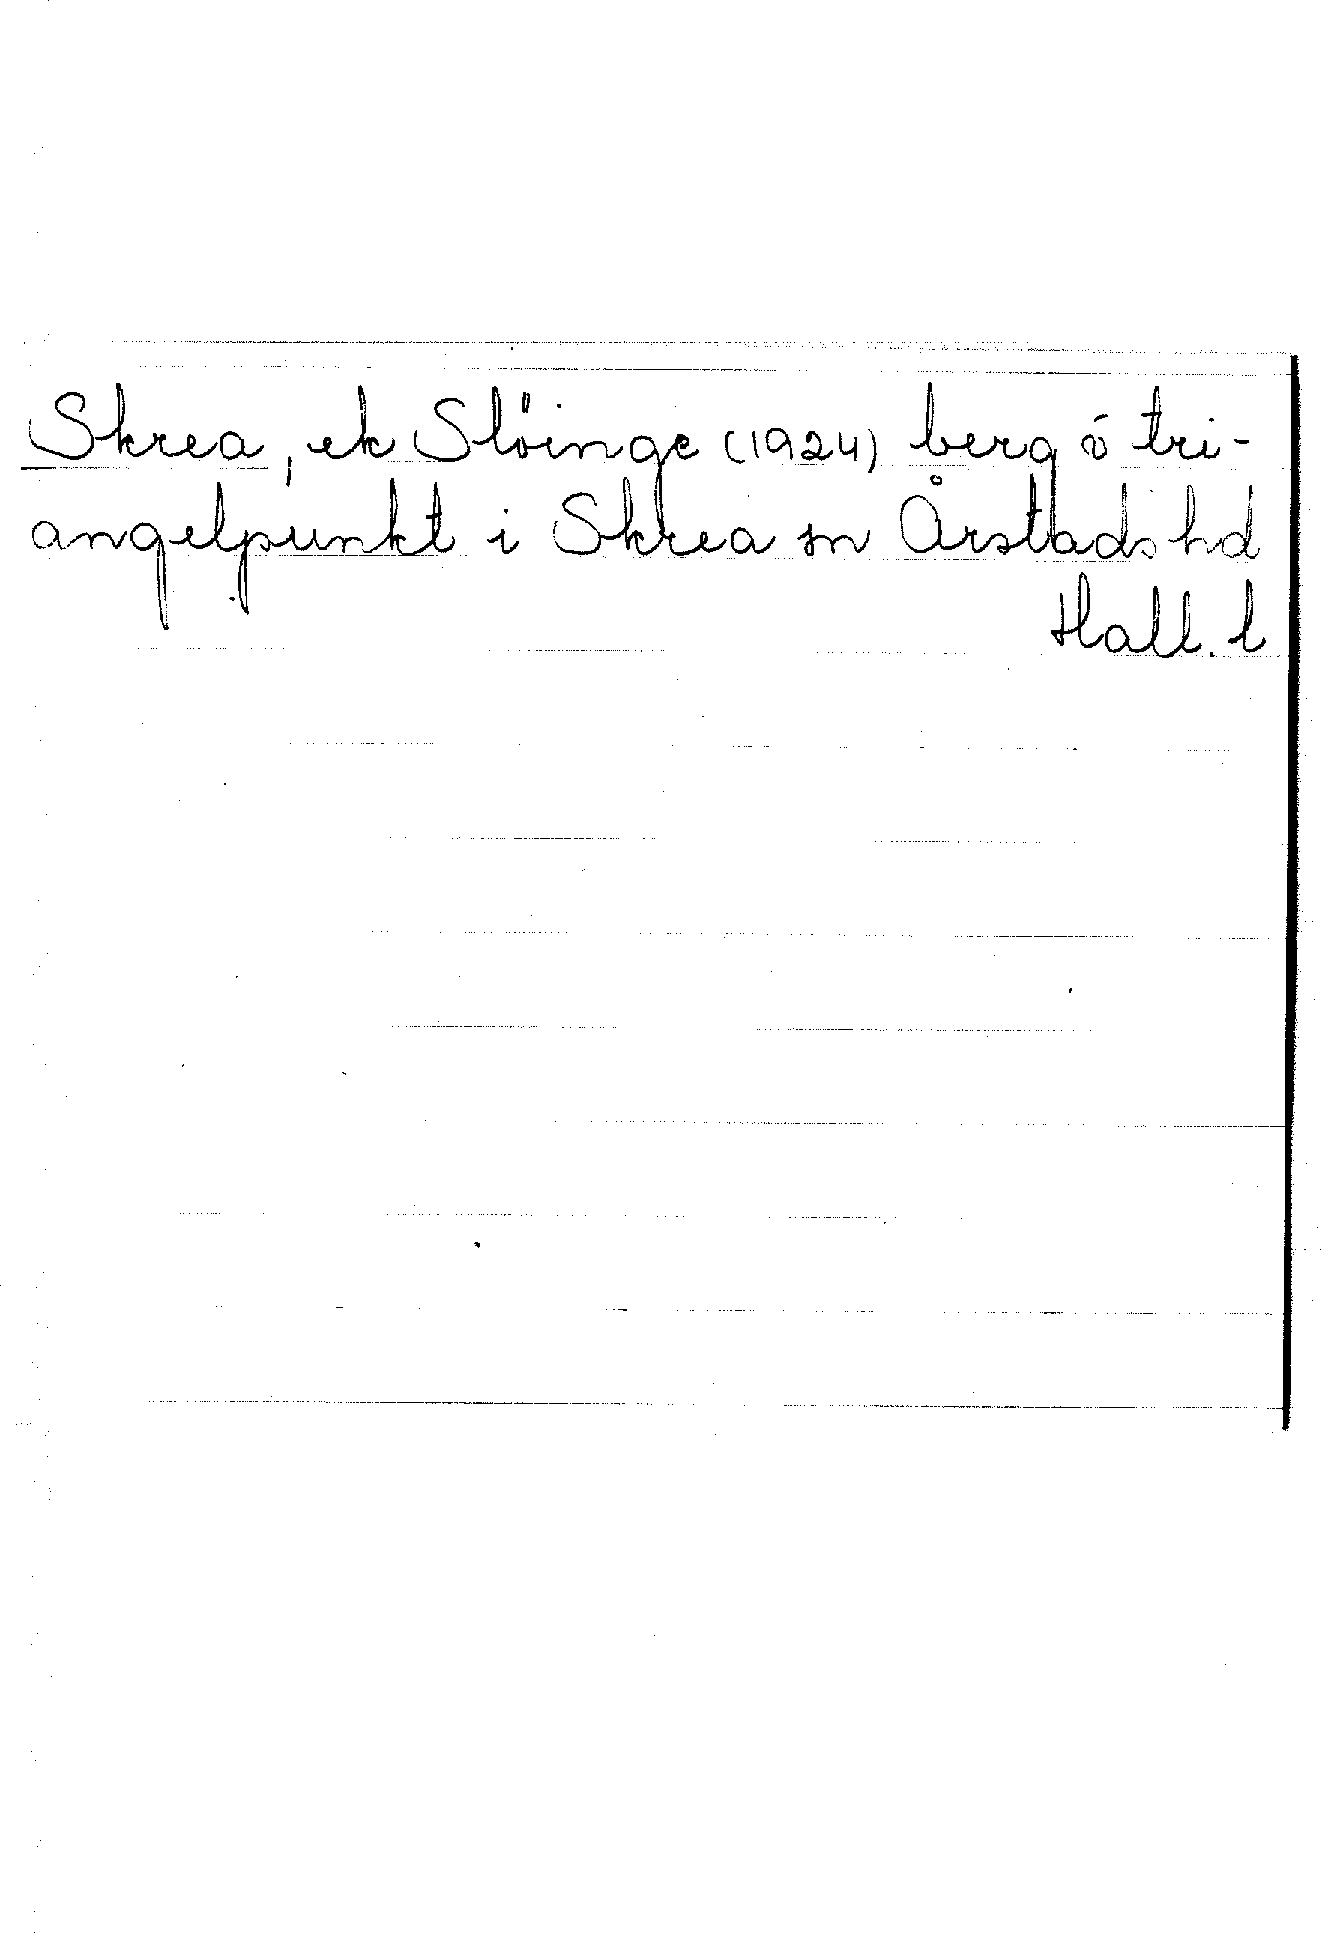 Skrea, ek Slöinge (1924) berg ö tri-
angelpunkt i Skrea sn Årstads hd
Hall. l